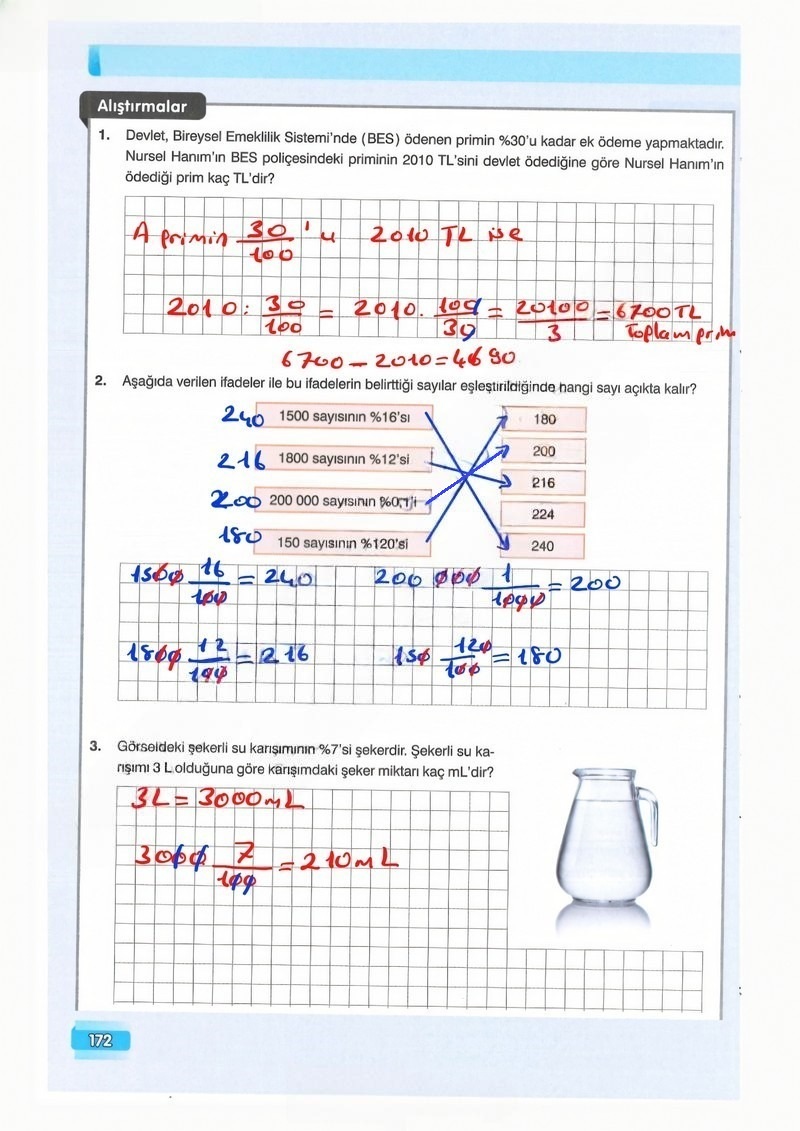 Alıştırmalar
1. Devlet, Bireysel Emeklilik Sistemi'nde (BES) ödenen primin %30'u kadar ek ödeme yapmaktadır.
Nursel Hanım'ın BES poliçesindeki priminin 2010 TL'sini devlet ödediğine göre Nursel Hanım'ın
ödediği prim kaç TL'dir?
A primin 30/100 'u 2010 TL ise
2010 : 30/100 = 2010 . 100/30 = 20100/3 = 6700 TL
Toplam prim
6700 - 2010 = 4690
2. Aşağıda verilen ifadeler ile bu ifadelerin belirttiği sayılar eşleştirildiğinde hangi sayı açıkta kalır?
240 1500 sayısının %16'sı 180
216 1800 sayısının %12'si 200
200 200 000 sayısının %0,1'i 216
224
180 150 sayısının %120'si 240
1500 16/100 = 240 200 000 1/1000 = 200
1800 12/100 = 216 150 120/100 = 180
3. Görseldeki şekerli su karışımının %7'si şekerdir. Şekerli su ka-
rışımı 3 L olduğuna göre karışımdaki şeker miktarı kaç mL'dir?
3L = 3000 mL
3000 7/100 = 210 mL
172